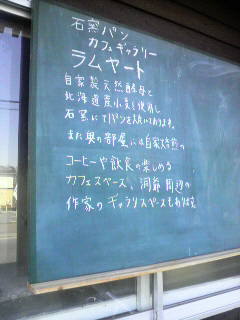 石窯パン
カフェギャラリー
ラムヤート
自家製天然酵母と
北海道産小麦を使用し
石窯にてパンを焼いております。
また奥の部屋には自家焙煎の
コーヒーや飲食の楽しめる
カフェスペース、洞爺周辺の
作家のギャラリースペースもあります